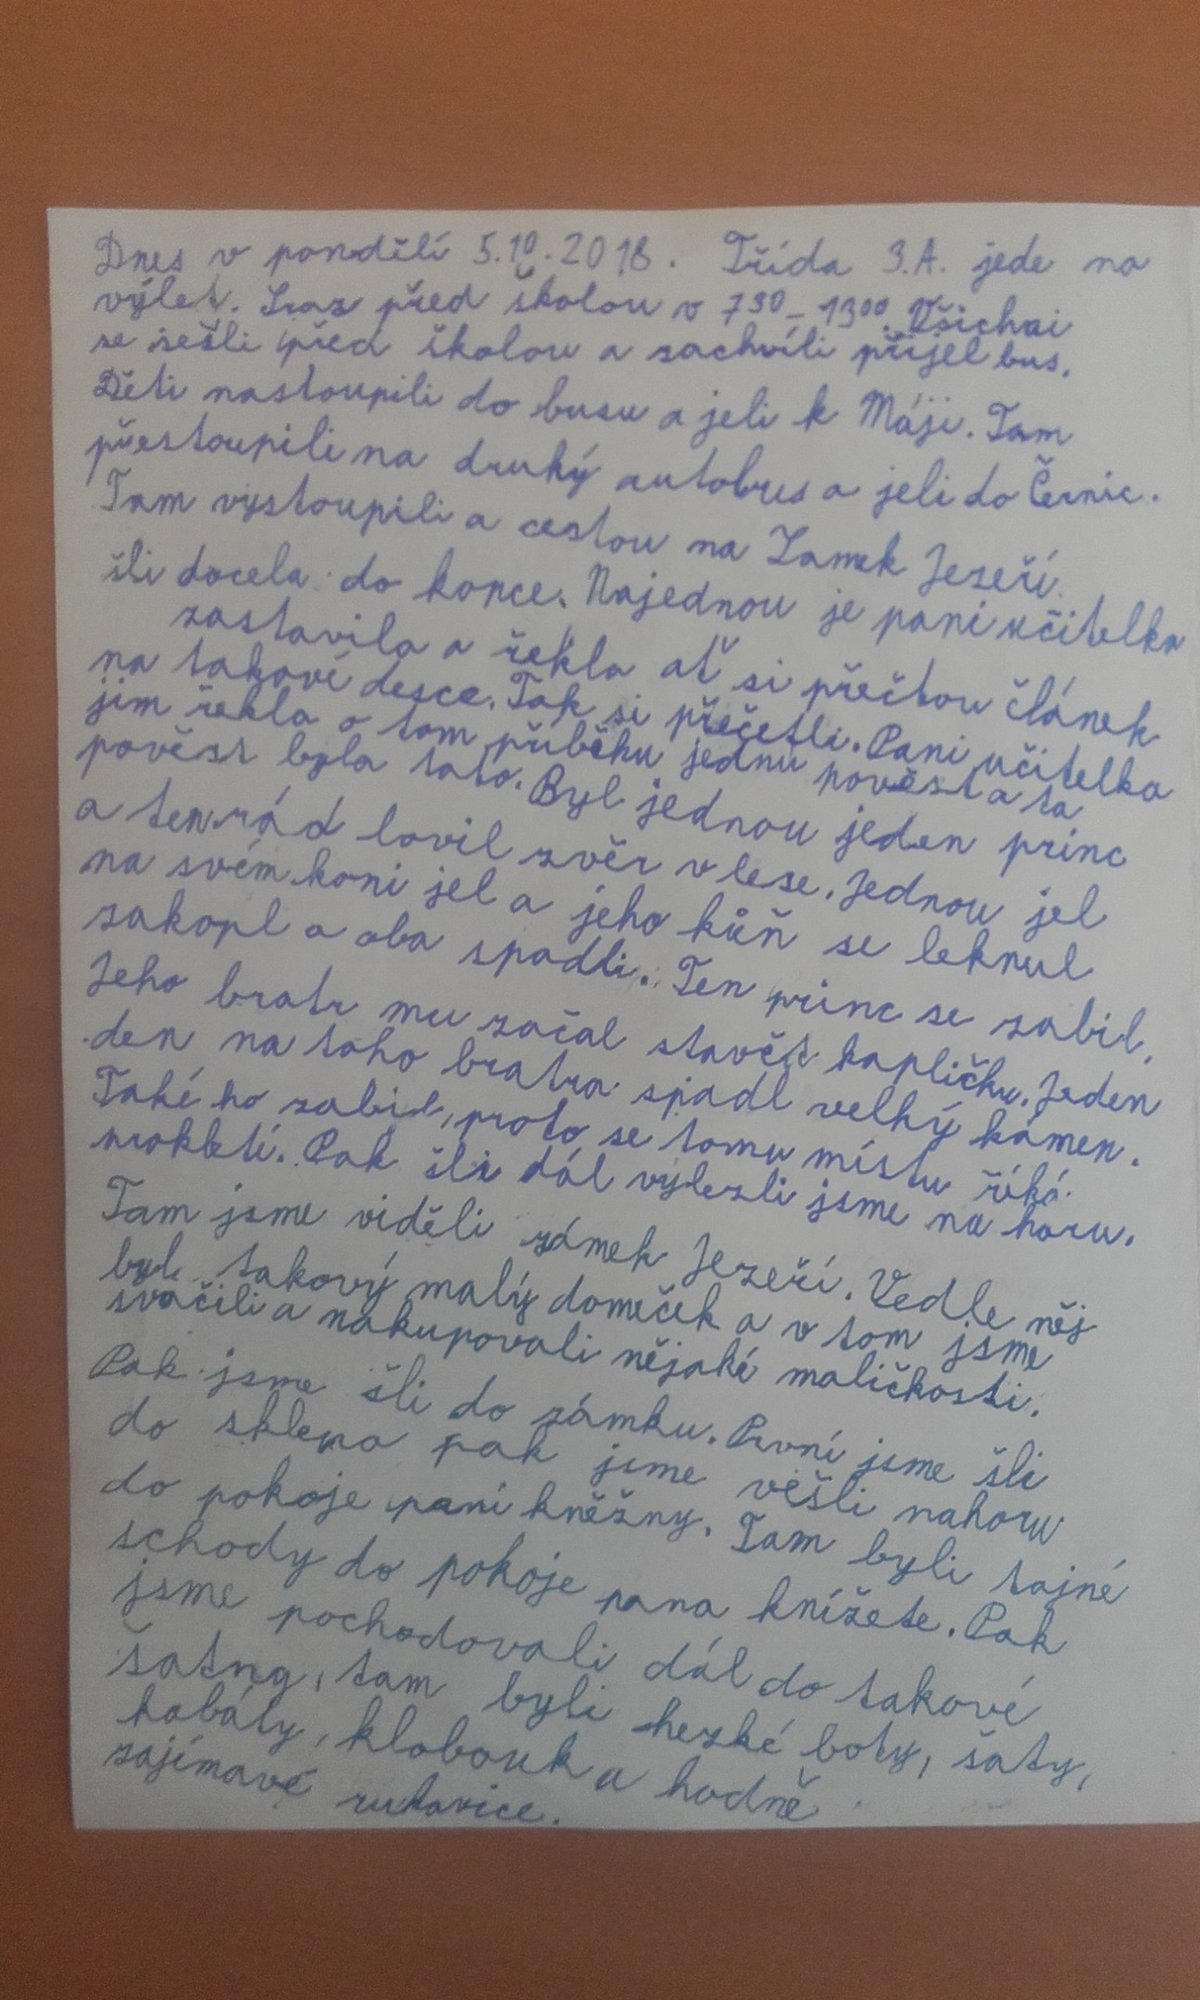 Dnes v pondělí 5.10.2018. Třída 3.A. jede na
výlet. Sraz před školou v 7³⁰ - 13⁰⁰. Všichni
se sešli před školou a zachvíli přijel bus.
Děti nastoupili do busu a jeli k Máji. Tam
přestoupili na druhý autobus a jeli do Černic.
Tam vystoupili a cestou na Zamek Jezeří.
šli docela do konce. Najednou je paní učitelka
zastavila a řekla ať si přečtou článek
na takové desce. Tak si přečetli. Pani učitelka
jim řekla o tom příběhu jednu pověst a ta
pověst byla tato. Byl jednou jeden princ
a ten rád lovil zvěr v lese. Jednou jel
na svém koni jel a jeho kůň se leknul
zakopl a oba spadli. Ten princ se zabil.
Jeho bratr mu začal stavět kapličku. Jeden
den na toho bratra spadl velký kámen.
Také ho zabil, proto se tomu místu říká
prokletí. Pak šli dál vylezli jsme na horu.
Tam jsme viděli zámek Jezeří. Vedle něj
byl takový malý domeček a v tom jsme
svačili a nakupovali nějaké maličkosti.
Pak jsme šli do zámku. První jsme šli
do sklepa pak jsme věšli nahoru
do pokoje paní kněžny. Tam byli tajné
schody do pokoje pana knížete. Pak
jsme pochodovali dál do takové
šatny, tam byli hezké boty, šaty,
kabáty, klobouk a hodně
zajímavé rukavice.